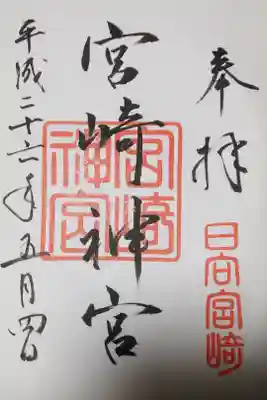 奉拝
日向宮崎
宮崎神宮
宮崎神宮
平成二十六年五月四日